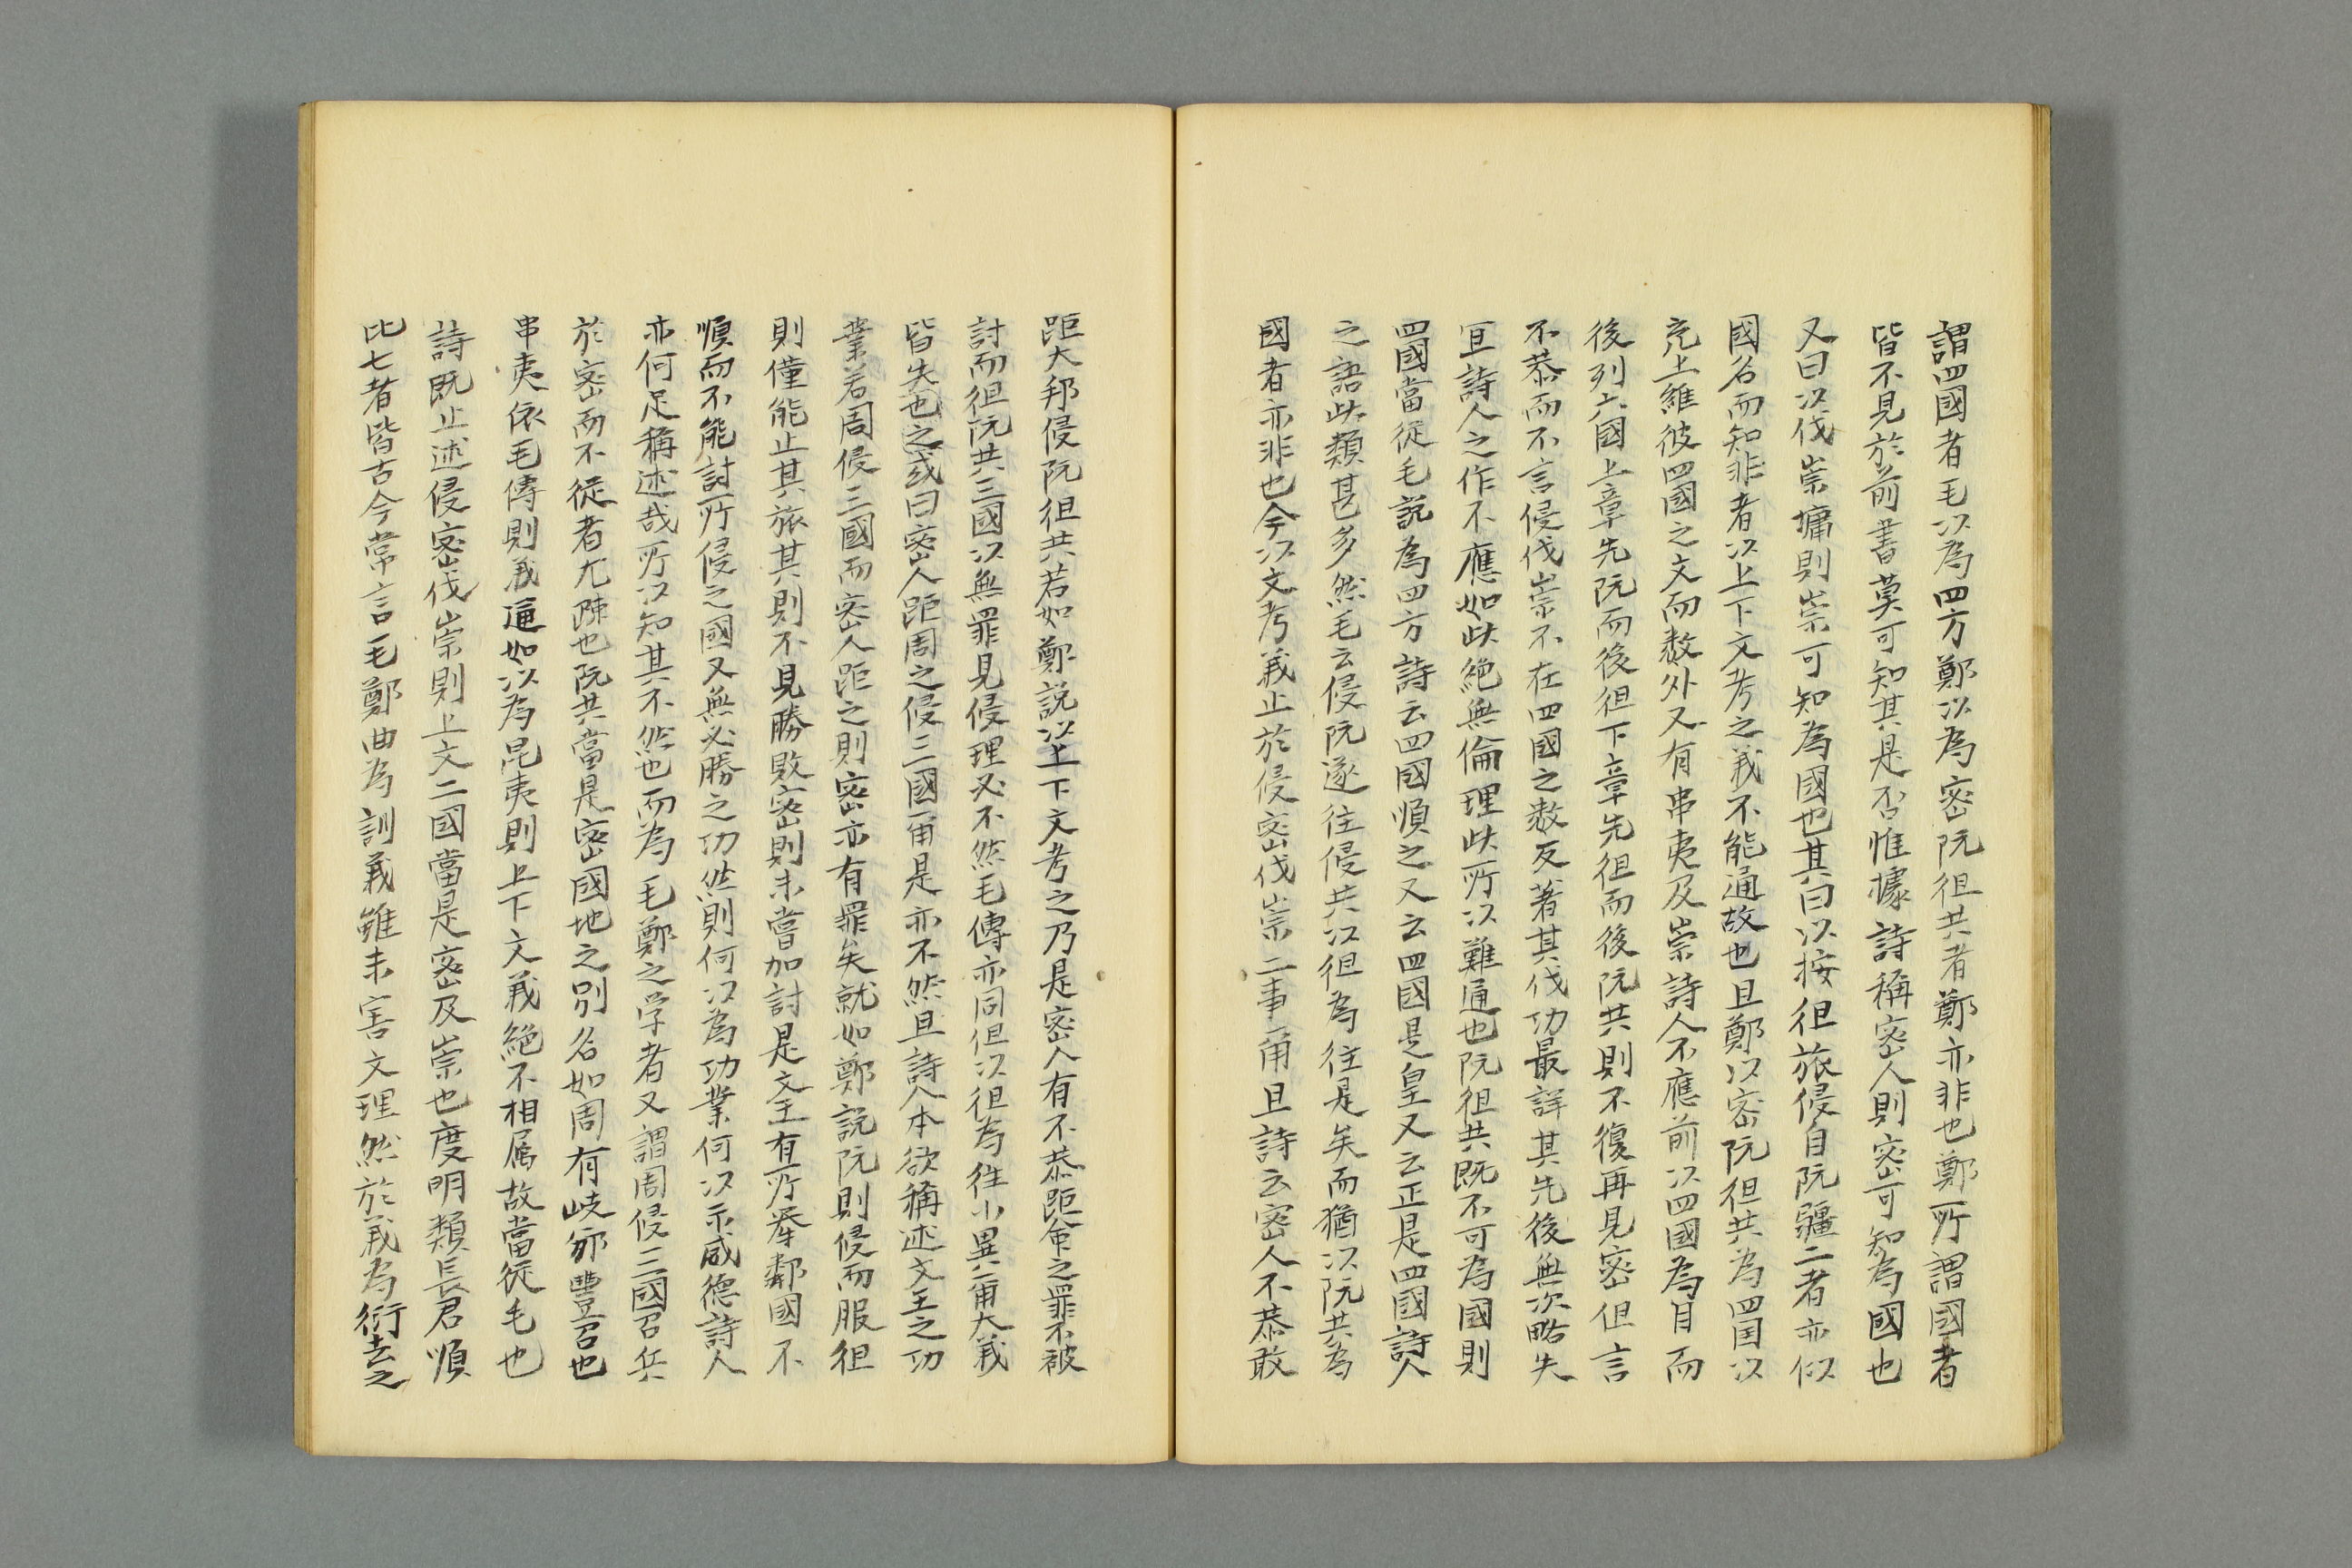 謂四國者毛以為四方鄭以為密阮徂共者鄭亦非也鄭所謂國者
皆不見於前書莫可知其是否惟據詩稱密人則密可知為國也
又曰以伐崇墉則崇可知為國也其曰以按徂旅侵自阮疆二者亦似
國名而知非者以上下文考之義不能通故也且鄭以密阮徂共為四国以
充上維彼四國之文而数外又有串夷及崇詩人不應前以四國為目而
後列六國上章先阮而後徂下章先徂而後阮共則不復再見密但言
不恭而不言侵伐崇不在四國之数反著其伐功最詳其先後無次略失
宜詩人之作不應如此絶無倫理此所以難通也阮徂共既不可為國則
四國當從毛説為四方詩云四國順之又云四國是皇又云正是四國詩人
之語此類甚多然毛云侵阮遂往侵共以徂為往是矣而猶以阮共為
國者亦非也今以文考義止於侵密伐崇二事爾且詩云密人不恭敢
距大邦侵阮徂共若如鄭説以上下文考之乃是密人有不恭距命之罪不被
討而徂阮共三國以無罪見侵理必不然毛傳亦同但以徂為往小異爾大義
皆失也之或曰密人距周之侵三國爾是亦不然且詩人本欲稱述文王之功
業若周侵三國而密人距之則密亦有罪矣就如鄭説阮則侵而服徂
則僅能止其旅其則不見勝敗密則未嘗加討是文王有所举鄰國不
順而不能討所侵之國又無必勝之功然則何以為功業何以示威德詩人
亦何足稱述哉所以知其不然也而為毛鄭之学者又謂周侵三國召兵
於密而不從者尤踈也阮共當是密國地之别名如周有岐邠豐召也
串夷依毛傳則義通如以為昆夷則上下文義絶不相属故當従毛也
詩既止述侵密伐崇則上文二國當是密及崇也度明類長君順
比七者皆古今常言毛鄭曲為訓義雖未害文理然於義為衍去之